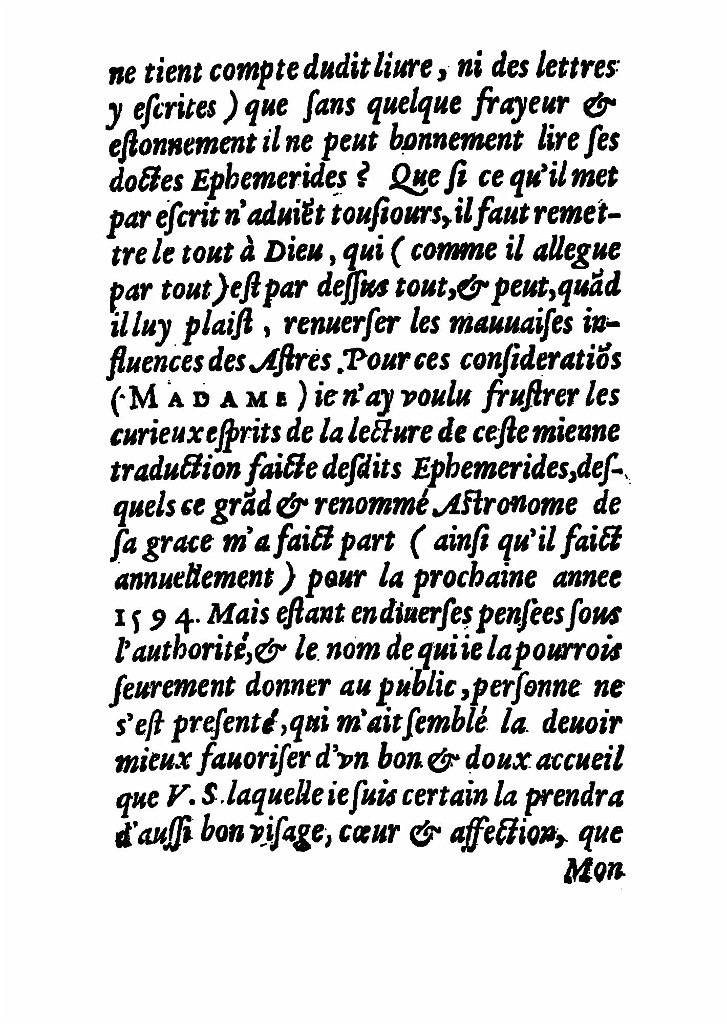 ne tient compte dudit liure, ni des lettres
y eſcrites) que ſans quelque frayeur &
eſtonnement il ne peut bonnement lire ſes
doctes Ephemerides? Que ſi ce qu'il met
par eſcrit n'aduiẽt touſiours, il faut remet-
tre le tout à Dieu, qui (comme il allegue
par tout) eſt par deſſus tout, & peut, quãd
il luy plaiſt, renuerſer les mauuaiſes in-
fluences des Aſtres. Pour ces conſideratiõs
(MADAME) ie n'ay voulu fruſtrer les
curieux eſprits de la lecture de ceſte mienne
traduction faicte deſdits Ephemerides, deſ-
quels ce grãd & renommé Aſtronome de
ſa grace m'a faict part (ainſi qu'il faict
annuellement) pour la prochaine annee
1594. Mais eſtant en diuerſes penſees ſous
l'authorité, & le nom de qui ie la pourrois
ſeurement donner au public, perſonne ne
s'eſt preſenté, qui m'ait ſemblé la deuoir
mieux fauoriſer d'vn bon & doux accueil
que V. S. laquelle ie ſuis certain la prendra
d'auſſi bon viſage, cœur & affection, que
Mon